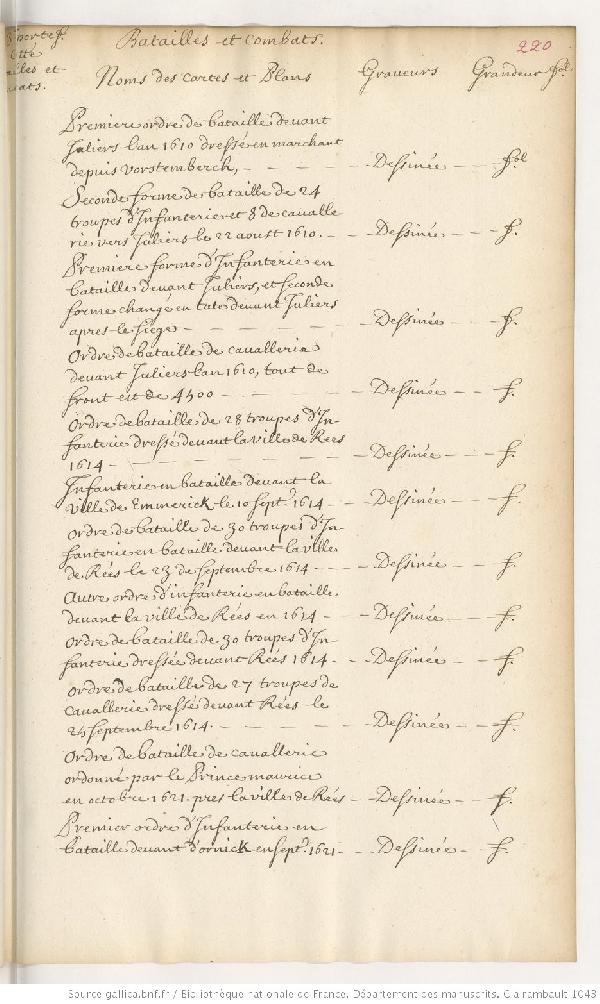 Batailles et Combats.
220
Noms des cartes et Plans Graveurs Grandeur
Premier ordre de bataille devant
Juliers l'an 1610 dressé en marchant
depuis vorstemberck, - - - Dessinée - - fol
Seconde forme de bataille de 24
troupes d'Infanterie et 8 de cavalle
rie vers Juliers le 22 aoust 1610. - - Dessinée - - f.
Premiere forme d'Infanterie en
bataille devant Juliers, et seconde
forme changé en tate devant Juliers
apres le siege - - - - Dessinée - - f.
Ordre de bataille de cavallerie
devant Juliers l'an 1610, tout de
front est de 4500 - - - Dessinée - - f.
Ordre de bataille de 28 troupes d'In-
fanterie dressé devant la ville de Rees
1614 - - - - Dessinée - - f.
Infanterie en bataille devant la
ville de Emmerick le 10 sept.e 1614 - - Dessinée - - f.
Ordre de bataille de 30 troupes d'In-
fanterie en bataille devant la ville
de Rées le 23 de septembre 1614 - - - Dessinée - - f.
Autre ordre d'infanterie en bataille
devant la ville de Rées en 1614 - - Dessinée - - f.
Ordre de bataille de 30 troupes d'In-
fanterie dressée devant Rées 1614 - - Dessinée - - f.
Ordre de bataille de 27 troupes de
cavallerie dressé devant Rées le
25 septembre 1614. - - - Dessinée - - f.
Ordre de bataille de cavallerie
ordonné par le Prince maurice
en octobre 1621 pres la ville de Rées - - Dessinée - - f.
Premier ordre d'Infanterie en
bataille devant d'ornick en sept.e 1621 - - Dessinée - - f.
Source gallica.bnf.fr / Bibliothèque nationale de France. Département des manuscrits. Clairambault 1043